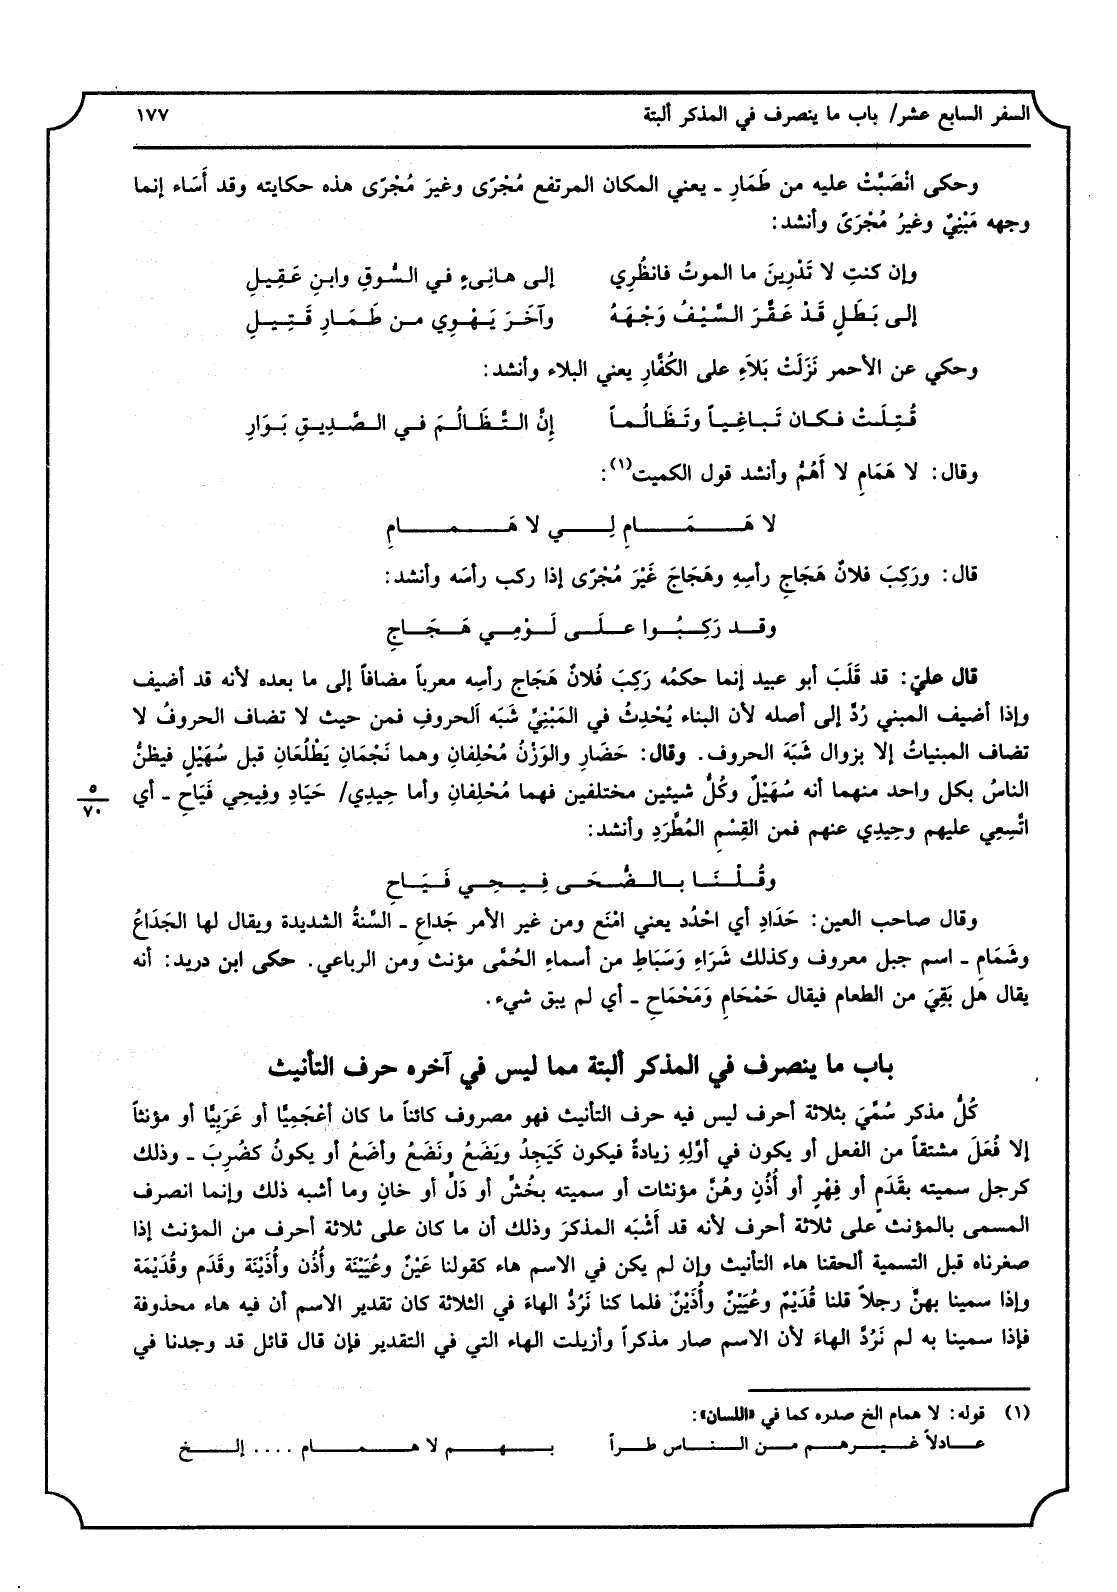 السفر السابع عشر/ باب ما ينصرف في المذكر ألبتة ١٧٧
وحكى انْصَبَّتْ عليه من طَمَارِ ـ يعني المكان المرتفع مُجْرًى وغيرَ مُجْرًى هذه حكايته وقد أَسَاء إنما
وجهه مَبْنِيٌ وغيرُ مُجْرَىً وأنشد:
وإن كنتِ لا تَدْرِينَ ما الموتُ فانظُرِي إلى هانِىءٍ في السُّوقِ وابنِ عَقِيلِ
إلى بَطَلٍ قَدْ عَقَّرَ السَّيْفُ وَجْهَهُ وآخَرَ يَهْوِي من طَمَارِ قَتِيلِ
وحكي عن الأحمر نَزَلَتْ بَلاَءِ على الكُفَّارِ يعني البلاء وأنشد:
قُتِلَتْ فكان تَبَاغِياً وتَظَالُماً إنَّ التَّظَالُمَ في الصَّدِيقِ بَوَارِ
وقال: لا هَمَامِ لا أَهُمُّ وأنشد قول الكميت(١):
لا هَمَامِ لِي لا هَمامِ
قال: ورَكِبَ فلانٌ هَجَاجِ رأسِهِ وهَجَاجَ غَيْرَ مُجْرًى إذا ركب رأسَه وأنشد:
وقد رَكِبُوا علَى لَوْمِي هَجَاجِ
قال عليّ: قد قَلَبَ أبو عبيد إنما حكمُه رَكِبَ فُلانٌ هَجَاجِ رأسِه معرباً مضافاً إلى ما بعده لأنه قد أضيف
وإذا أضيف المبني رُدَّ إلى أصله لأن البناء يُحْدِثُ في المَبْنِيِّ شَبَه الحروفِ فمن حيث لا تضاف الحروفُ لا
تضاف المبنياتُ إلا بزوال شَبَهَ الحروف. وقال: حَضَارِ والوَزْنُ مُحْلِفانِ وهما نَجْمَانِ يَطْلُعَانِ قبل سُهَيْلٍ فيظنُّ
الناسُ بكل واحد منهما أنه سُهَيْلٌ وكُلُّ شيئين مختلفين فهما مُحْلِفانِ وأما حِيدِي/ حَيَادِ وفِيحِي فَيَاحِ ـ أي
٥
٧٠
اتَّسِعِي عليهم وحِيدِي عنهم فمن القِسْمِ المُطَّرَدِ وأنشد:
وقُلْنَا بالضُّحَى فِيحِي فَيَاحِ
وقال صاحب العين: حَدَادِ أي احْدُد يعني امْنَع ومن غير الأمر جَداعِ ـ السَّنةُ الشديدة ويقال لها الجَدَاعُ
وشَمَامِ ـ اسم جبل معروف وكذلك شَرَاءِ وَسَبَاطِ من أسماءِ الحُمَّى مؤنث ومن الرباعي. حكى ابن دريد: أنه
يقال هل بَقِيَ من الطعام فيقال حَمْحَامِ وَمَحْمَاحِ ـ أي لم يبق شيء.
باب ما ينصرف في المذكر ألبتة مما ليس في آخره حرف التأنيث
كُلُّ مذكر سُمِّيَ بثلاثة أحرف ليس فيه حرف التأنيث فهو مصروف كائناً ما كان أعْجَمِيًّا أو عَرَبِيًّا أو مؤنثاً
إلا فُعَلَ مشتقاً من الفعل أو يكون في أوَّلِهِ زيادةٌ فيكون كَيَجِدُ ويَضَعُ ونَضَعُ وأضَعُ أو يكونُ كضُرِبَ ـ وذلك
كرجل سميته بقَدَمٍ أو فِهْرٍ أو أُذُنٍ وهُنَّ مؤنثات أو سميته بخُشٍّ أو دَلٍّ أو خانٍ وما أشبه ذلك وإنما انصرف
المسمى بالمؤنث على ثلاثة أحرف لأنه قد أَشْبَه المذكرَ وذلك أن ما كان على ثلاثة أحرف من المؤنث إذا
صغرناه قبل التسمية ألحقنا هاء التأنيث وإن لم يكن في الاسم هاء كقولنا عَيْنٌ وعُيَيْنَة وأُذُن وأُذَيْنَة وقَدَم وقُدَيْمَة
وإذا سمينا بهنَّ رجلاً قلنا قُدَيْمٌ وعُيَيْنٌ وأُذَيْنٌ فلما كنا نَرُدُّ الهاءَ في الثلاثة كان تقدير الاسم أن فيه هاء محذوفة
فإذا سمينا به لم نَرُدَّ الهاءَ لأن الاسم صار مذكراً وأزيلت الهاء التي في التقدير فإن قال قائل قد وجدنا في
(١) قوله: لا همام الخ صدره كما في «اللسان»:
عادلاً غيرهم من الناس طراً بهم لا همام .... إلخ